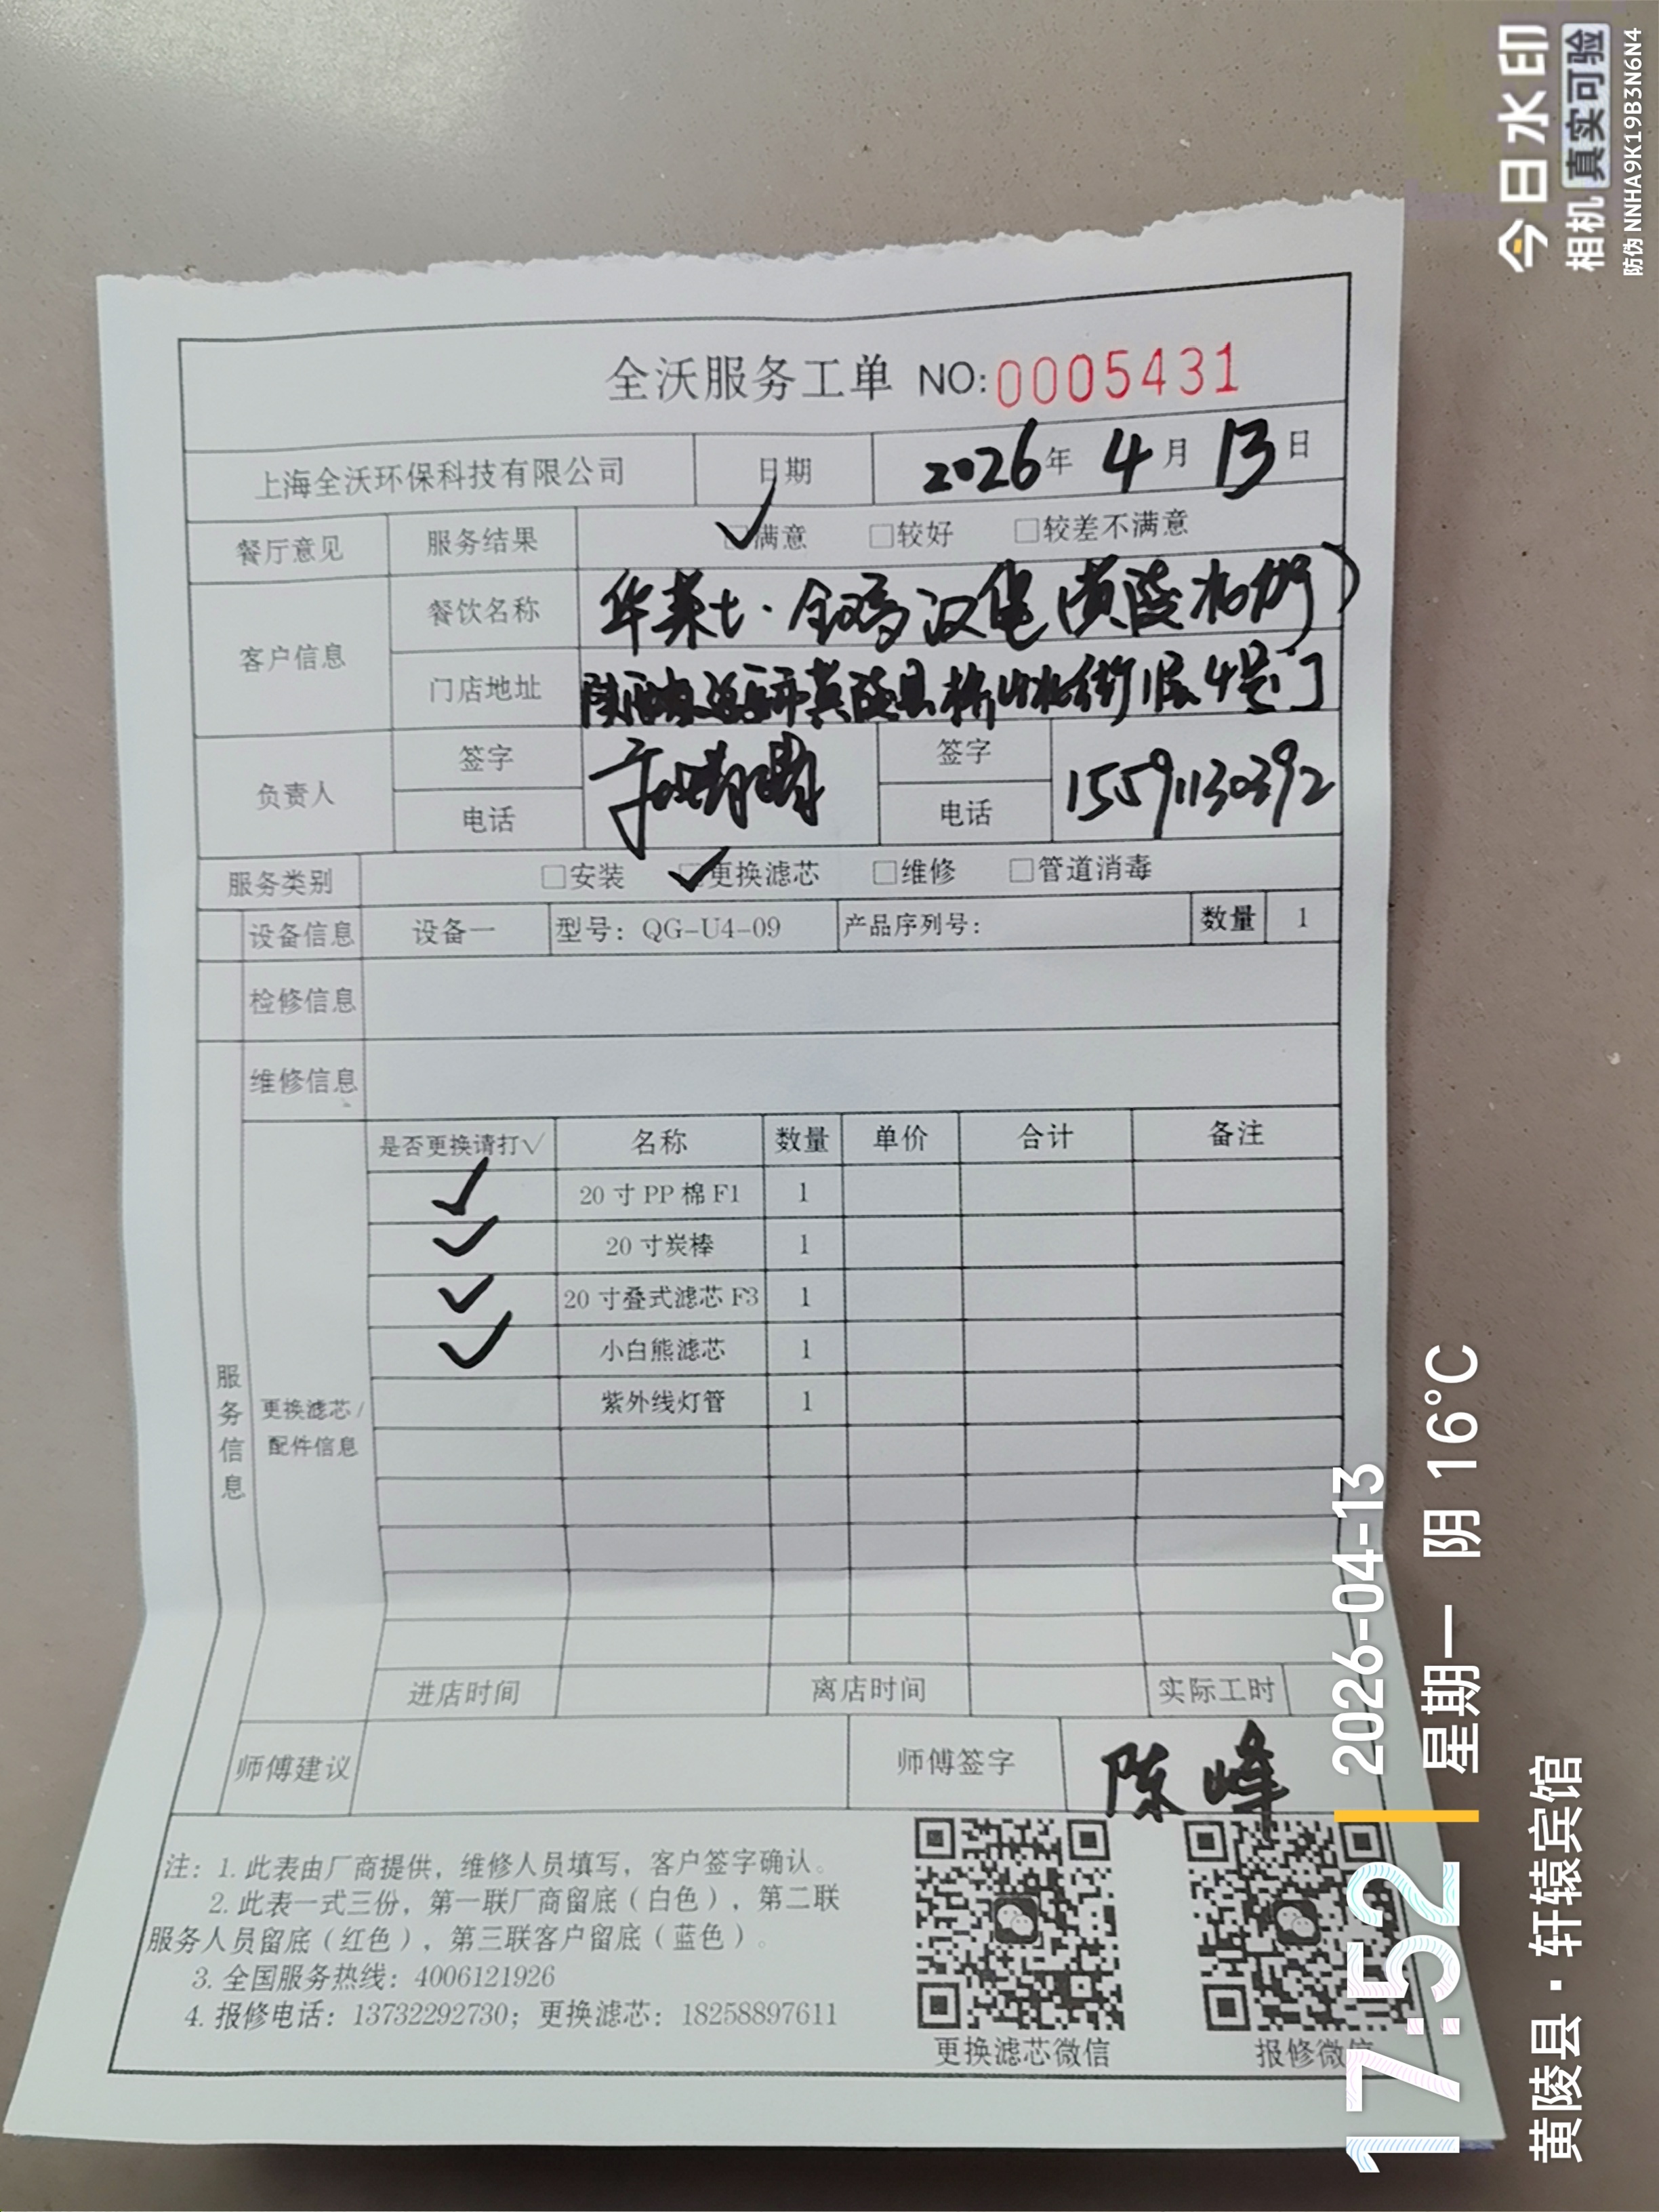 全沃服务工单 NO:0005431
上海全沃环保科技有限公司 日期 2026年 4月 13日
餐厅意见 服务结果 ☑满意 □较好 □较差不满意
客户信息 餐饮名称 华莱士·全鸡汉堡(黄陵 )
门店地址 黄陵县桥山 街 4号门
负责人 签字 签字
电话 电话 15591130392
服务类别 □安装 ☑更换滤芯 □维修 □管道消毒
设备信息 设备一 型号:QG-U4-09 产品序列号: 数量 1
检修信息
维修信息
服务信息
更换滤芯/
配件信息
是否更换请打√ 名称 数量 单价 合计 备注
✓ 20寸PP棉F1 1
✓ 20寸炭棒 1
✓ 20寸叠式滤芯F3 1
✓ 小白熊滤芯 1
紫外线灯管 1
进店时间 离店时间 实际工时
师傅建议 师傅签字 陈峰
注:1.此表由厂商提供,维修人员填写,客户签字确认。
2.此表一式三份,第一联厂商留底(白色),第二联
服务人员留底(红色),第三联客户留底(蓝色)。
3.全国服务热线:4006121926
4.报修电话:13732292730;更换滤芯:18258897611
更换滤芯微信 报修微信
今日水印
相机 真实可验
防伪 NNHA9K19B3N6N4
17:52
2026-04-13
星期一 阴 16°C
黄陵县·轩辕宾馆